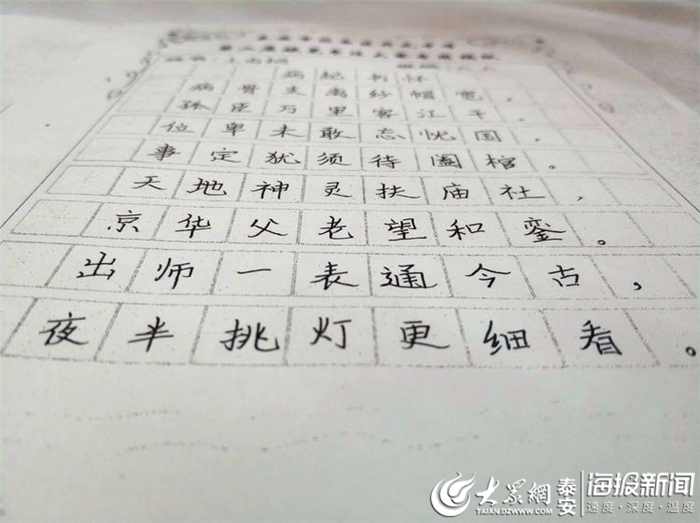 病起书怀
病骨支离纱帽宽，
孤臣万里客江干。
位卑未敢忘忧国，
事定犹须待阖棺。
天地神灵扶庙社，
京华父老望和銮。
出师一表通今古，
夜半挑灯更细看。
大众網 泰安 海报新闻
TAIAN.DZWWW.COM 速度·深度·温度